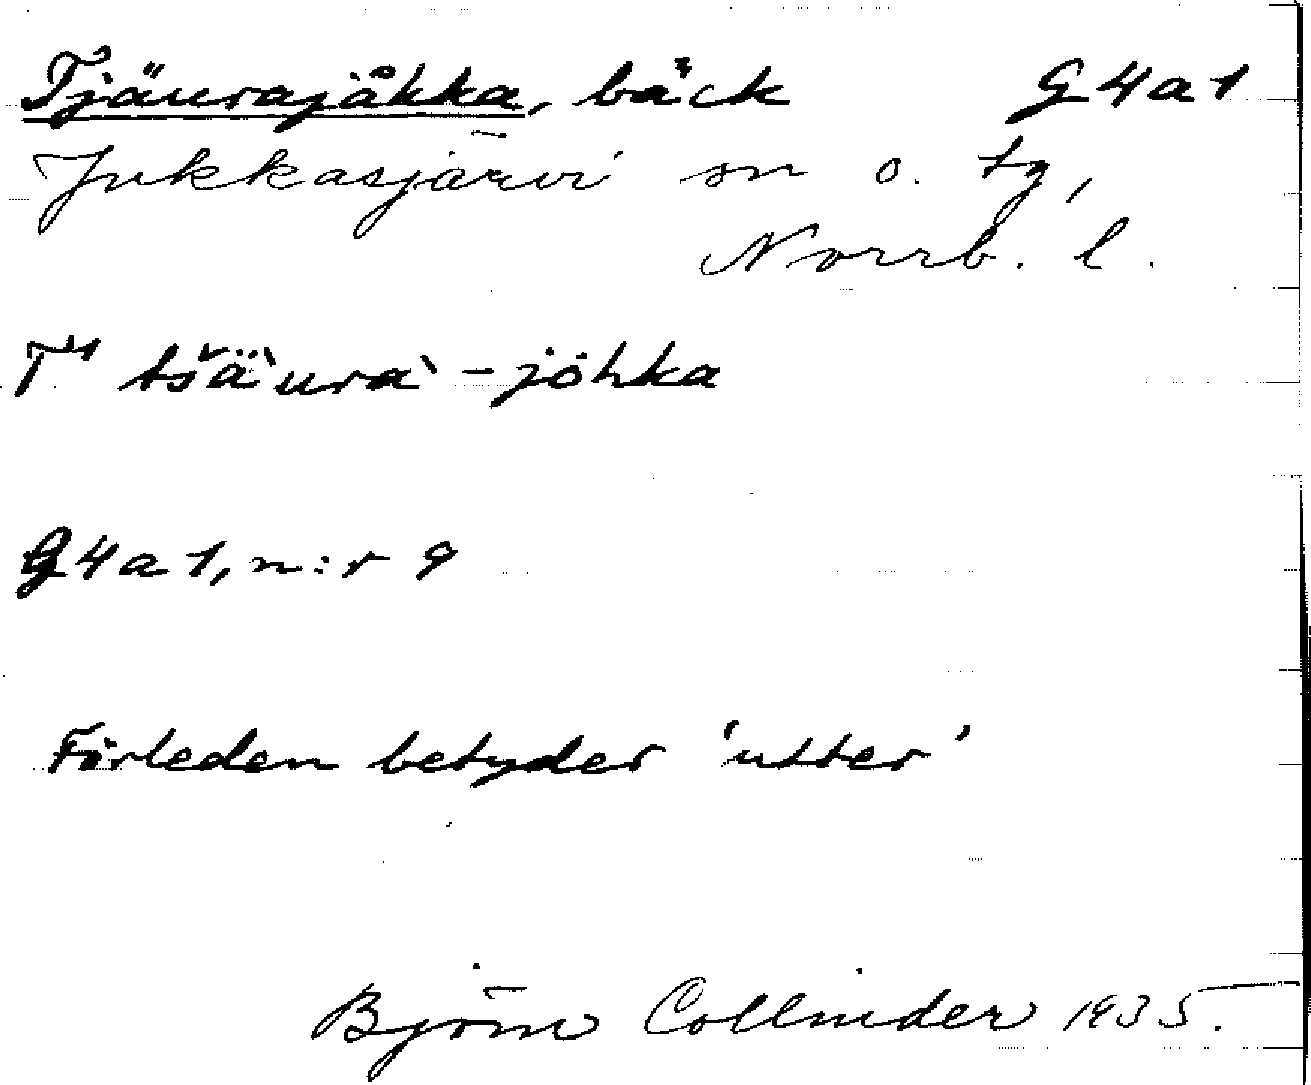 Tjäurajåkka, bäck G4a1
Jukkasjärvi sn o. tg,
Norrb. l.
T¹¹ tšä`ura` - jåhka
G4a1, n:r 9
Förleden betyder 'utter'
Björn Collinder 1935.